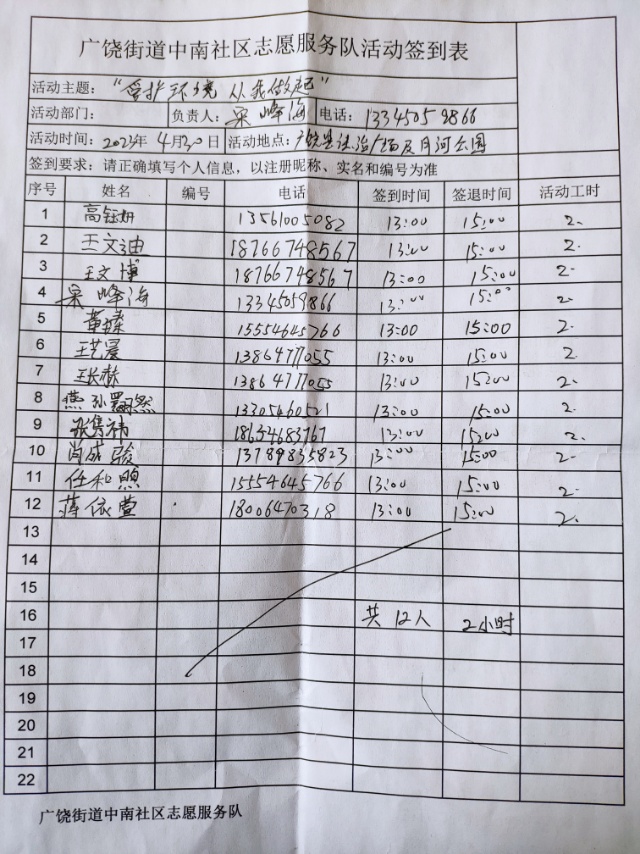 广饶街道中南社区志愿服务队活动签到表
活动主题：“爱护环境 从我做起”
活动部门： 负责人：梁峰海 电话：13345059866
活动时间：2023年4月30日 活动地点：广饶县法治广场及月河公园
签到要求：请正确填写个人信息，以注册昵称、实名和编号为准
序号 姓名 编号 电话 签到时间 签退时间 活动工时
1 高钰妍 13561005082 13:00 15:00 2.
2 王文迪 18766748567 13:00 15:00 2.
3 王文博 18766748567 13:00 15:00 2.
4 梁峰海 13345059866 13:00 15:00 2.
5 15554645766 13:00 15:00 2.
6 王艺晨 13864771055 13:00 15:00 2.
7 王长赫 13864771055 13:00 15:00 2.
8 燕孙翾然 13305460521 13:00 15:00 2.
9 张隽祎 18654683767 13:00 15:00 2.
10 肖成骏 13789835823 13:00 15:00 2.
11 任和煦 15554645766 13:00 15:00 2.
12 蒋依萱 18006470318 13:00 15:00 2.
13
14
15
16 共12人 2小时
17
18
19
20
21
22
广饶街道中南社区志愿服务队